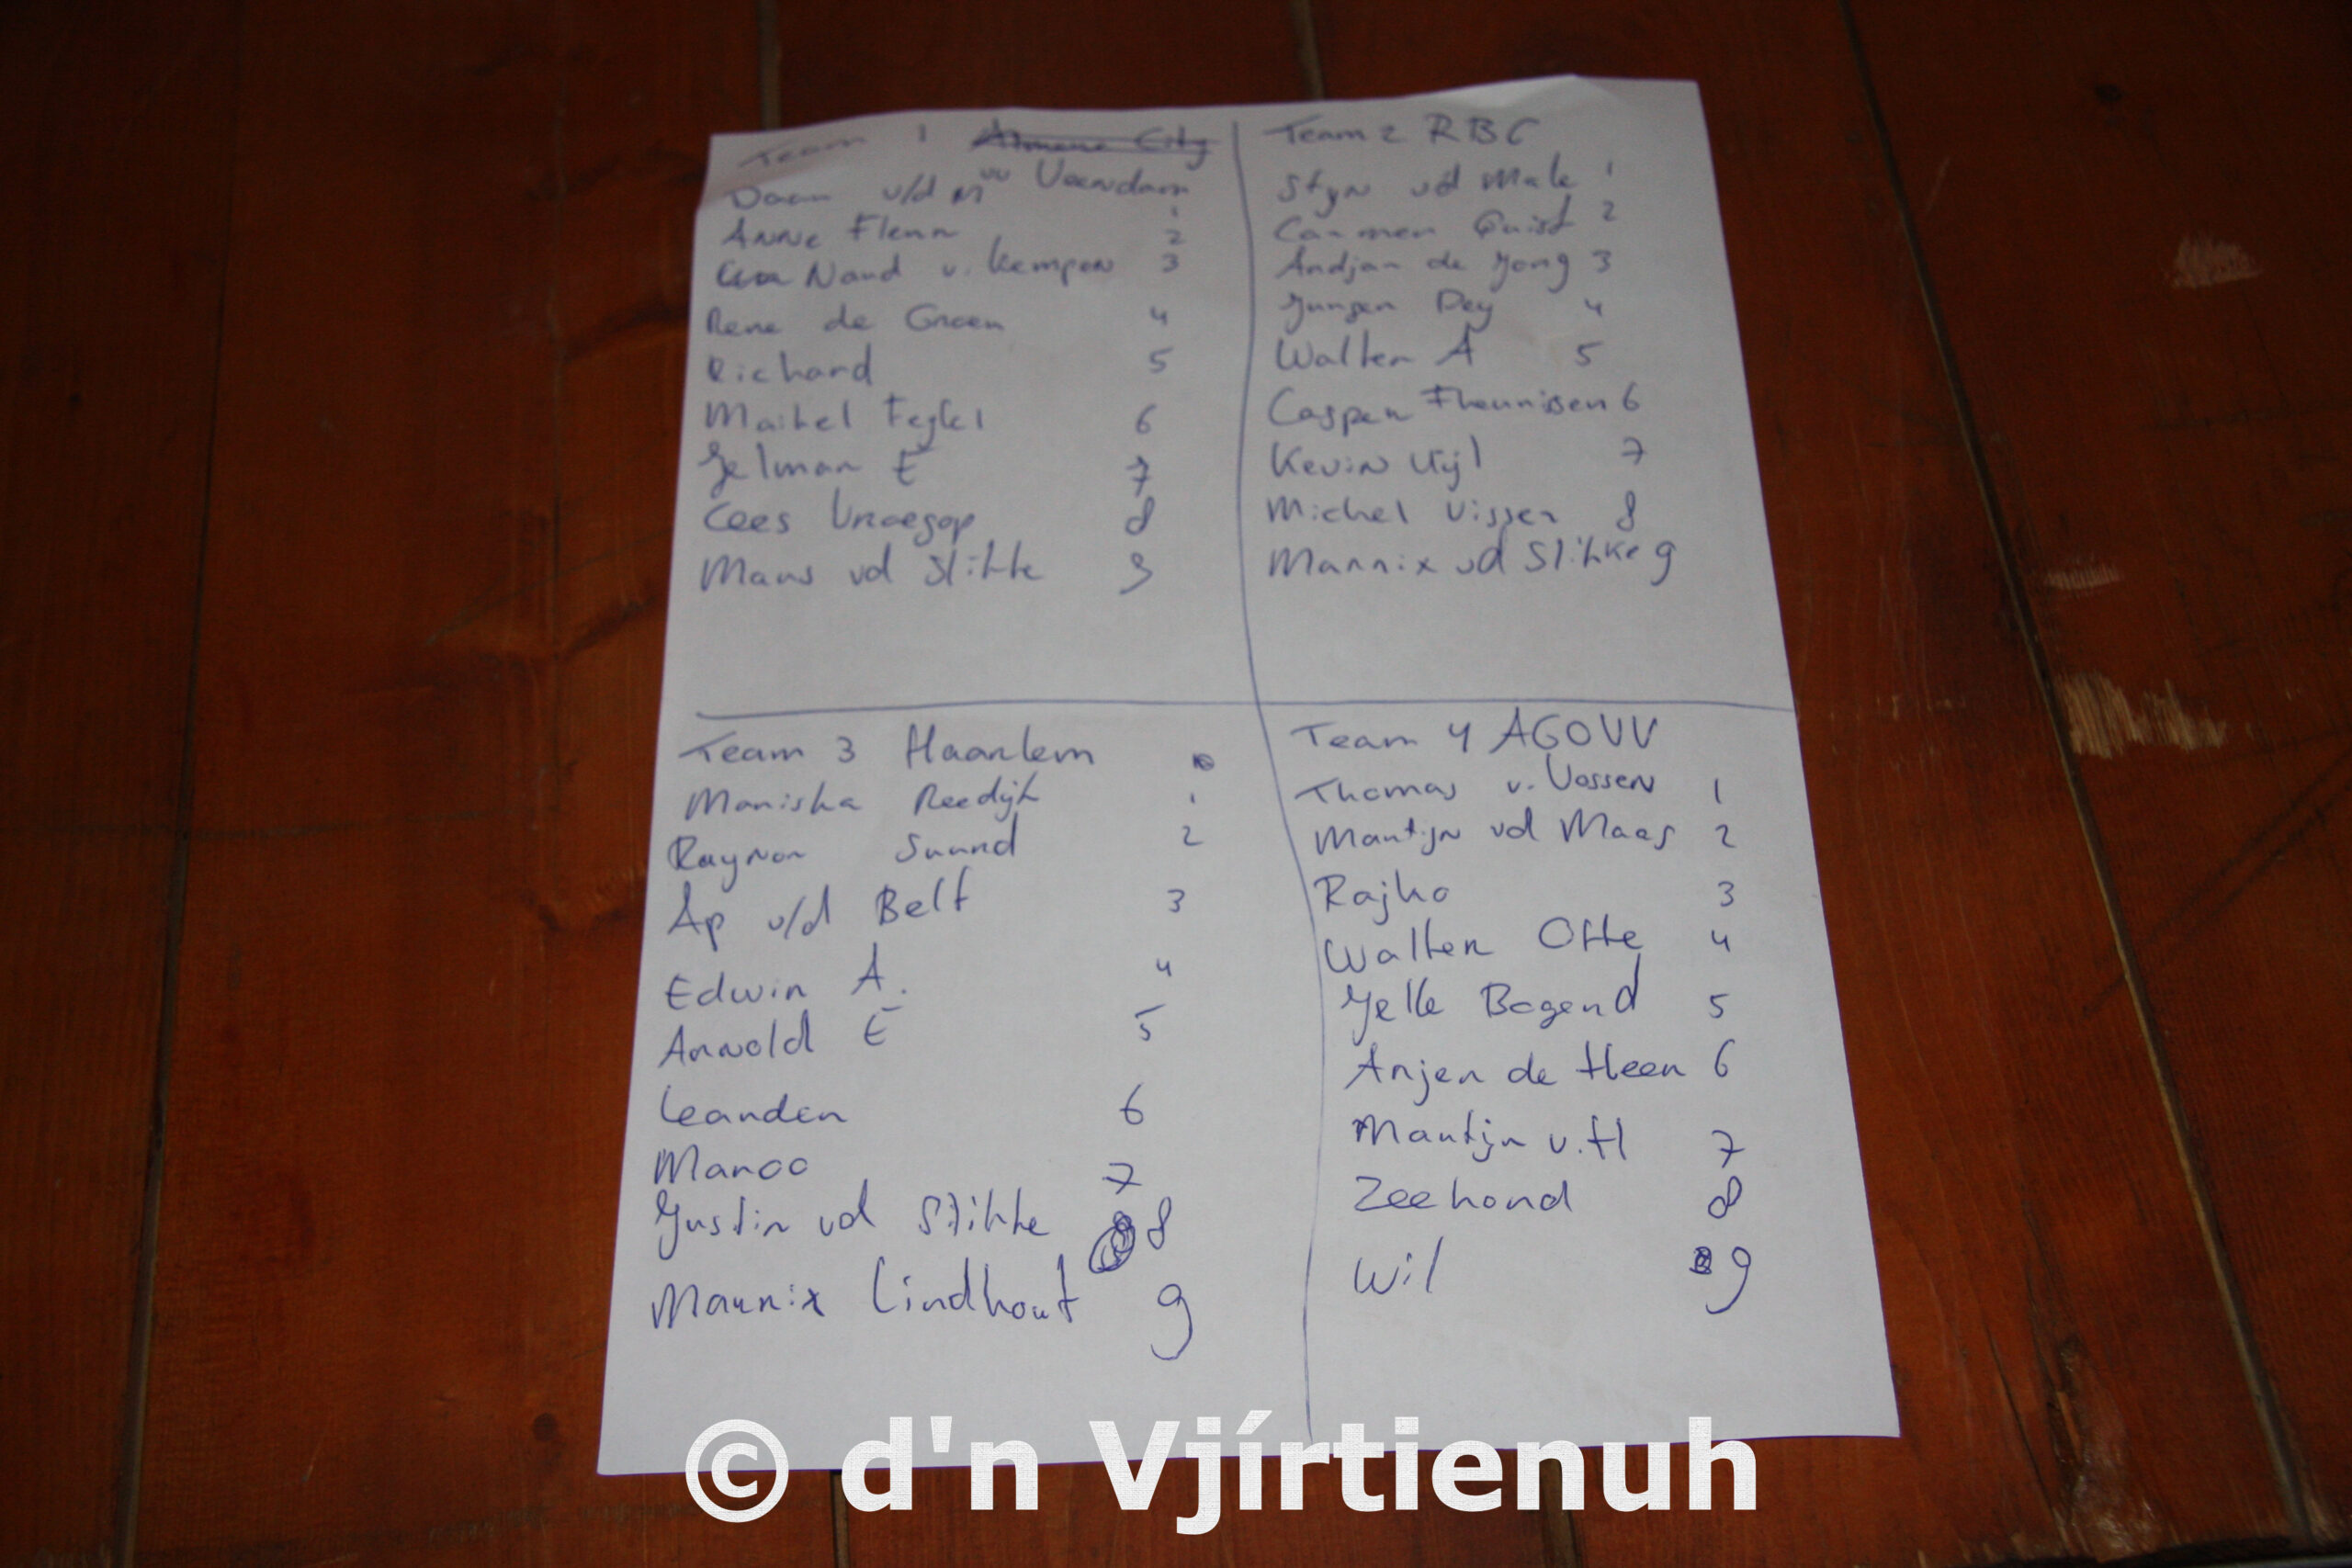 Team 1 Almere City
vv Veendam
Daan v/d M 1
Anne Fleur 2
Nand v. Kempen 3
Rene de Groen 4
Richard 5
Maikel Feykel 6
Jelmar E 7
Cees Vroegop 8
Mans vd Slikke 9
Team 2 RBC
Styn vd Male 1
Carmen Quist 2
Andjan de Jong 3
Jurgen Dey 4
Walter A 5
Casper Theunissen 6
Kevin Uijl 7
Michel Visser 8
Marnix vd Slikke 9
Team 3 Haarlem
Moniska Reedijk 1
Raynor Suurd 2
Ap v/d Belt 3
Edwin A. 4
Arnold E 5
Leander 6
Marco 7
Justin vd Slikke 8
Marnix Lindhout 9
Team 4 AGOVV
Thomas v. Vossen 1
Martijn vd Maas 2
Rajko 3
Walter Otte 4
Jelle Bogerd 5
Arjen de Heer 6
Martijn v. H 7
Zeehond 8
Wil 9
© d'n Vjírtienuh